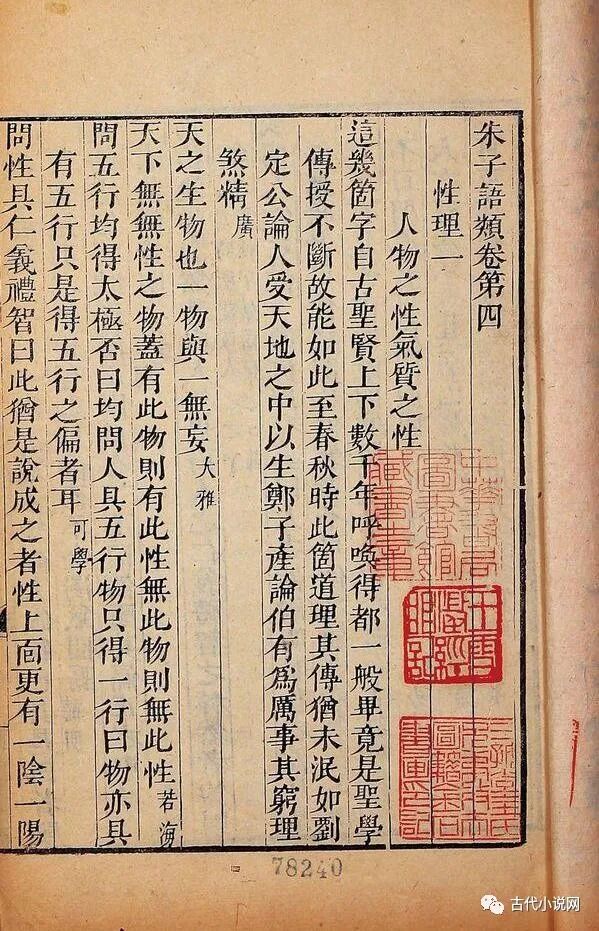 朱子語類卷第四
性理一
人物之性氣質之性
這幾箇字自古聖賢上下數千年呼喚得都一般畢竟是聖學
傳授不斷故能如此至春秋時此箇道理其傳猶未泯如劉
定公論人受天地之中以生鄭子產論伯有為厲事其窮理
煞精廣
天之生物也一物與一無妄大雅
天下無無性之物蓋有此物則有此性無此物則無此性若海
問五行均得太極否曰均問人具五行物只得一行曰物亦具
有五行只是得五行之偏者耳可學
問性具仁義禮智曰此猶是說成之者性上面更有一陰一陽
中華書局圖書館藏書章
78240
古代小说网